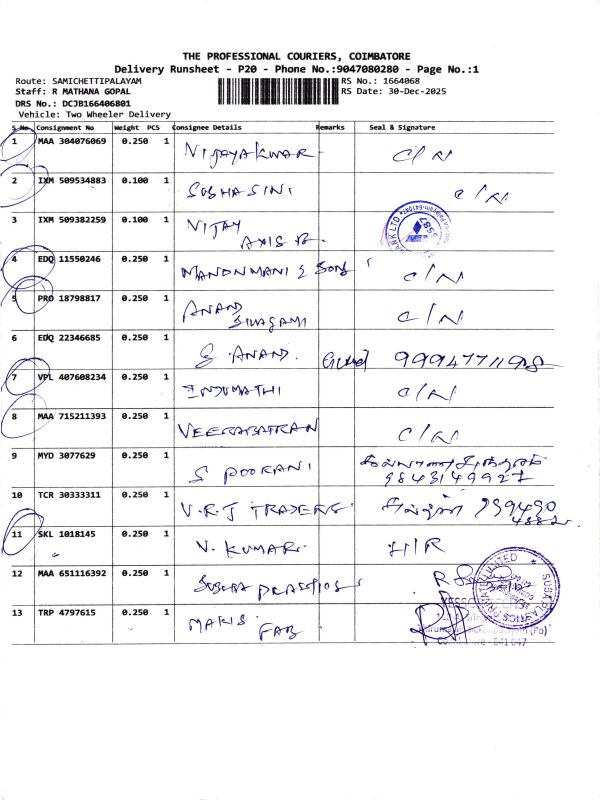 THE PROFESSIONAL COURIERS, COIMBATORE
Delivery Runsheet - P20 - Phone No.:9047080280 - Page No.:1
Route: SAMICHETTIPALAYAM RS No.: 1664068
Staff: R MATHANA GOPAL RS Date: 30-Dec-2025
DRS No.: DCJB166406801
Vehicle: Two Wheeler Delivery
S No. Consignment No Weight PCS Consignee Details Remarks Seal & Signature
1 MAA 304076069 0.250 1 VIJAYAKUMAR C/N
2 IXM 509534883 0.100 1 SUBHASINI C/N
3 IXM 509382259 0.100 1 VIJAY
AXIS B.
4 EDQ 11550246 0.250 1 MANONMANI & SONS C/N
5 PRO 18798817 0.250 1 ANAND
SIVAGAMI C/N
6 EDQ 22346685 0.250 1 G. ANAND.
7 VPL 407608234 0.250 1 INDUMATHI C/N
8 MAA 715211393 0.250 1 VEERABATRAN C/N
9 MYD 3077629 0.250 1 S POORANI
9843149927
10 TCR 30333311 0.250 1 V.R.J TRADERS
11 SKL 1018145 0.250 1 V. KUMAR H/R
12 MAA 651116392 0.250 1
13 TRP 4797615 0.250 1 MARIS
FAB
Coimbatore - 641 047